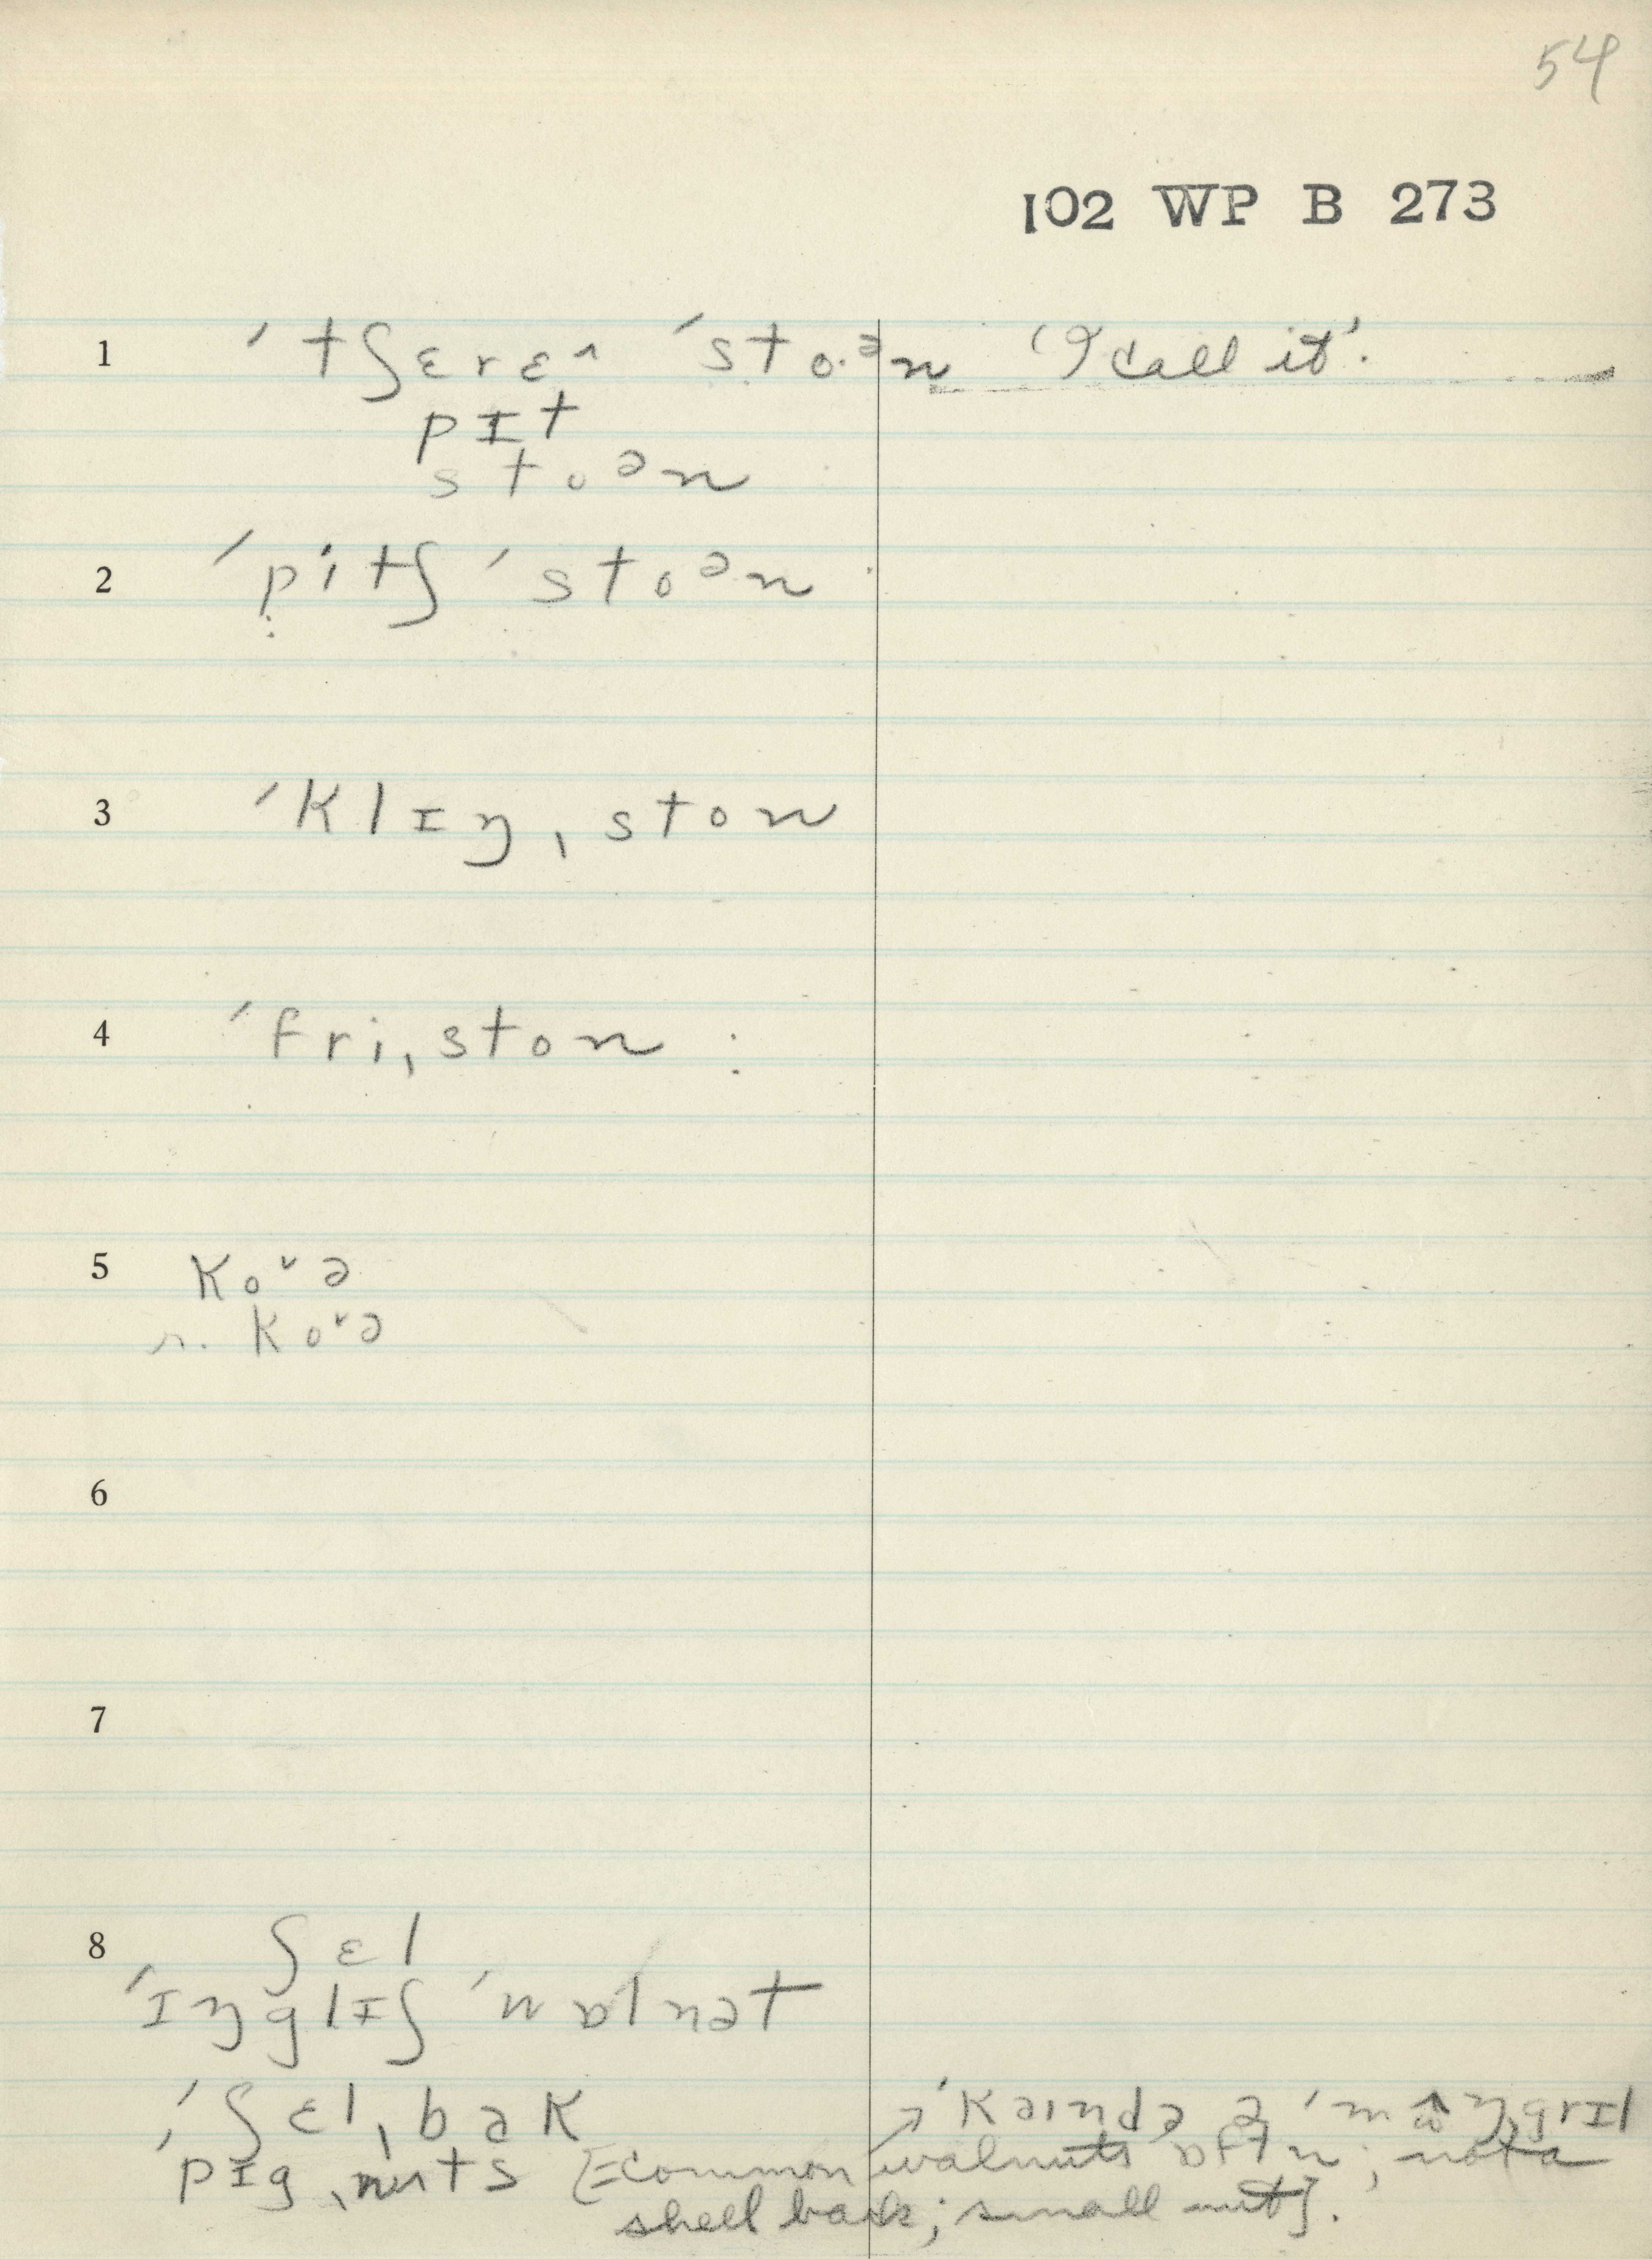 54
102 WP B 273
1 ˈtʃɛrɛ^ ˈsto·ᵊn 'I call it'.
pɪt
stoᵊn
2 ˈpitʃ ˈstoᵊn
3 ˈklɪŋˌston
4 ˈfriˌston
5 ko˅ə
r. ko˅ə
6
7
8 ʃɛl
ˈɪŋglɪʃ ˈwɒlnət
ˈʃɛlˌbak → ˈkaɪndə ə
ˈpɪgˌnʌts [=common walnuts ; not a
shell back; small nut].